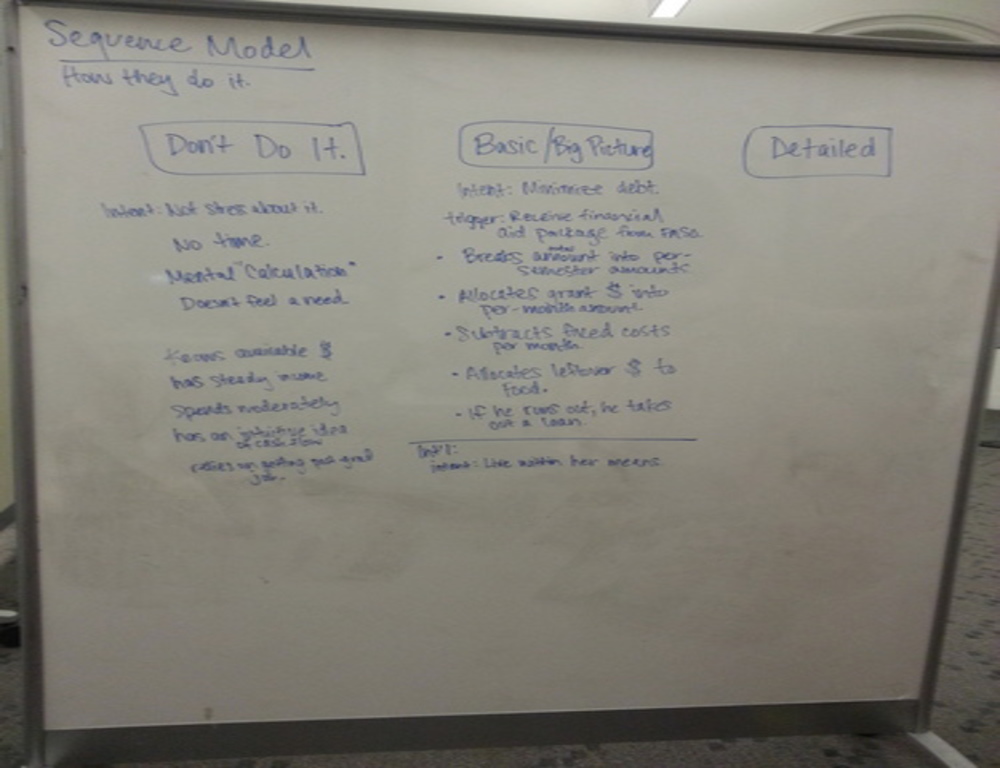 Sequence Model
How they do it.
Don't Do It.
Intent: Not stress about it.
No time.
Mental "Calculation"
Doesn't feel a need
available $
has steady income
Spends moderately
has an intuitive idea
of cash flow
relies on getting post grad
job.
Basic/Big Picture
Intent: Minimize debt.
trigger: Receive financial
aid package from FASA
• Breaks amount into per-
semester amounts
• Allocates grant $ into
per-month amount
• Subtracts fixed costs
per month
• Allocates leftover $ to
food.
• If he runs out, he takes
out a loan.
Int'l:
intent: Live within her means.
Detailed